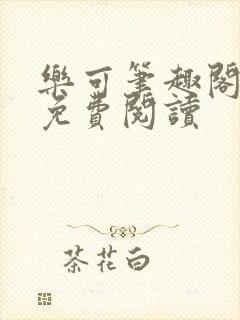 樂可筆趣閣
免費閱讀
茶花白